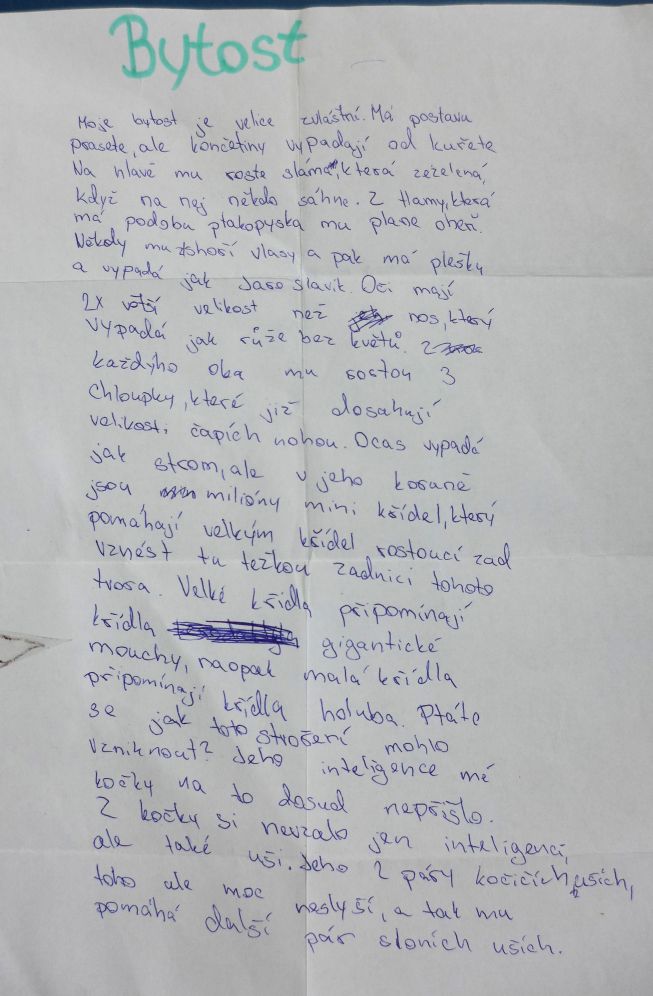 Bytost
Moje bytost je velice zvláštní. Má postavu
prasete, ale končetiny vypadají od kuřete
Na hlavě mu roste sláma, která zezelená,
když na nej někdo sáhne. Z tlamy, která
má podobu ptakopyska mu plane oheň.
Někdy mu shoří vlasy a pak má plešku
a vypadá jak Jaro slavik. Oči mají
2x větší velikost než nos, který
vypadá jak růže bez květů. Z
každýho oka mu rostou 3
chloupky, které již dosahují
velikosti čapích nohou. Ocas vypadá
jak strom, ale v jeho koruně
jsou milióny mini křídel, který
pomáhají velkým křídel rostoucí zad
vznést tu težkou zadnici tohoto
tvora. Velké křídla připomínají
křídla gigantické
mouchy, naopak malá křídla
připomínají křídla holuba. Ptáte
se jak toto strošení mohlo
vzniknout? Jeho inteligence mé
kočky na to dosud nepřišlo.
Z kočky si nevzalo jen inteligenci,
ale také uši. Jeho 2 páry kočičích uších,
toho ale moc neslyší, a tak mu
pomáhá další pár sloních uších.